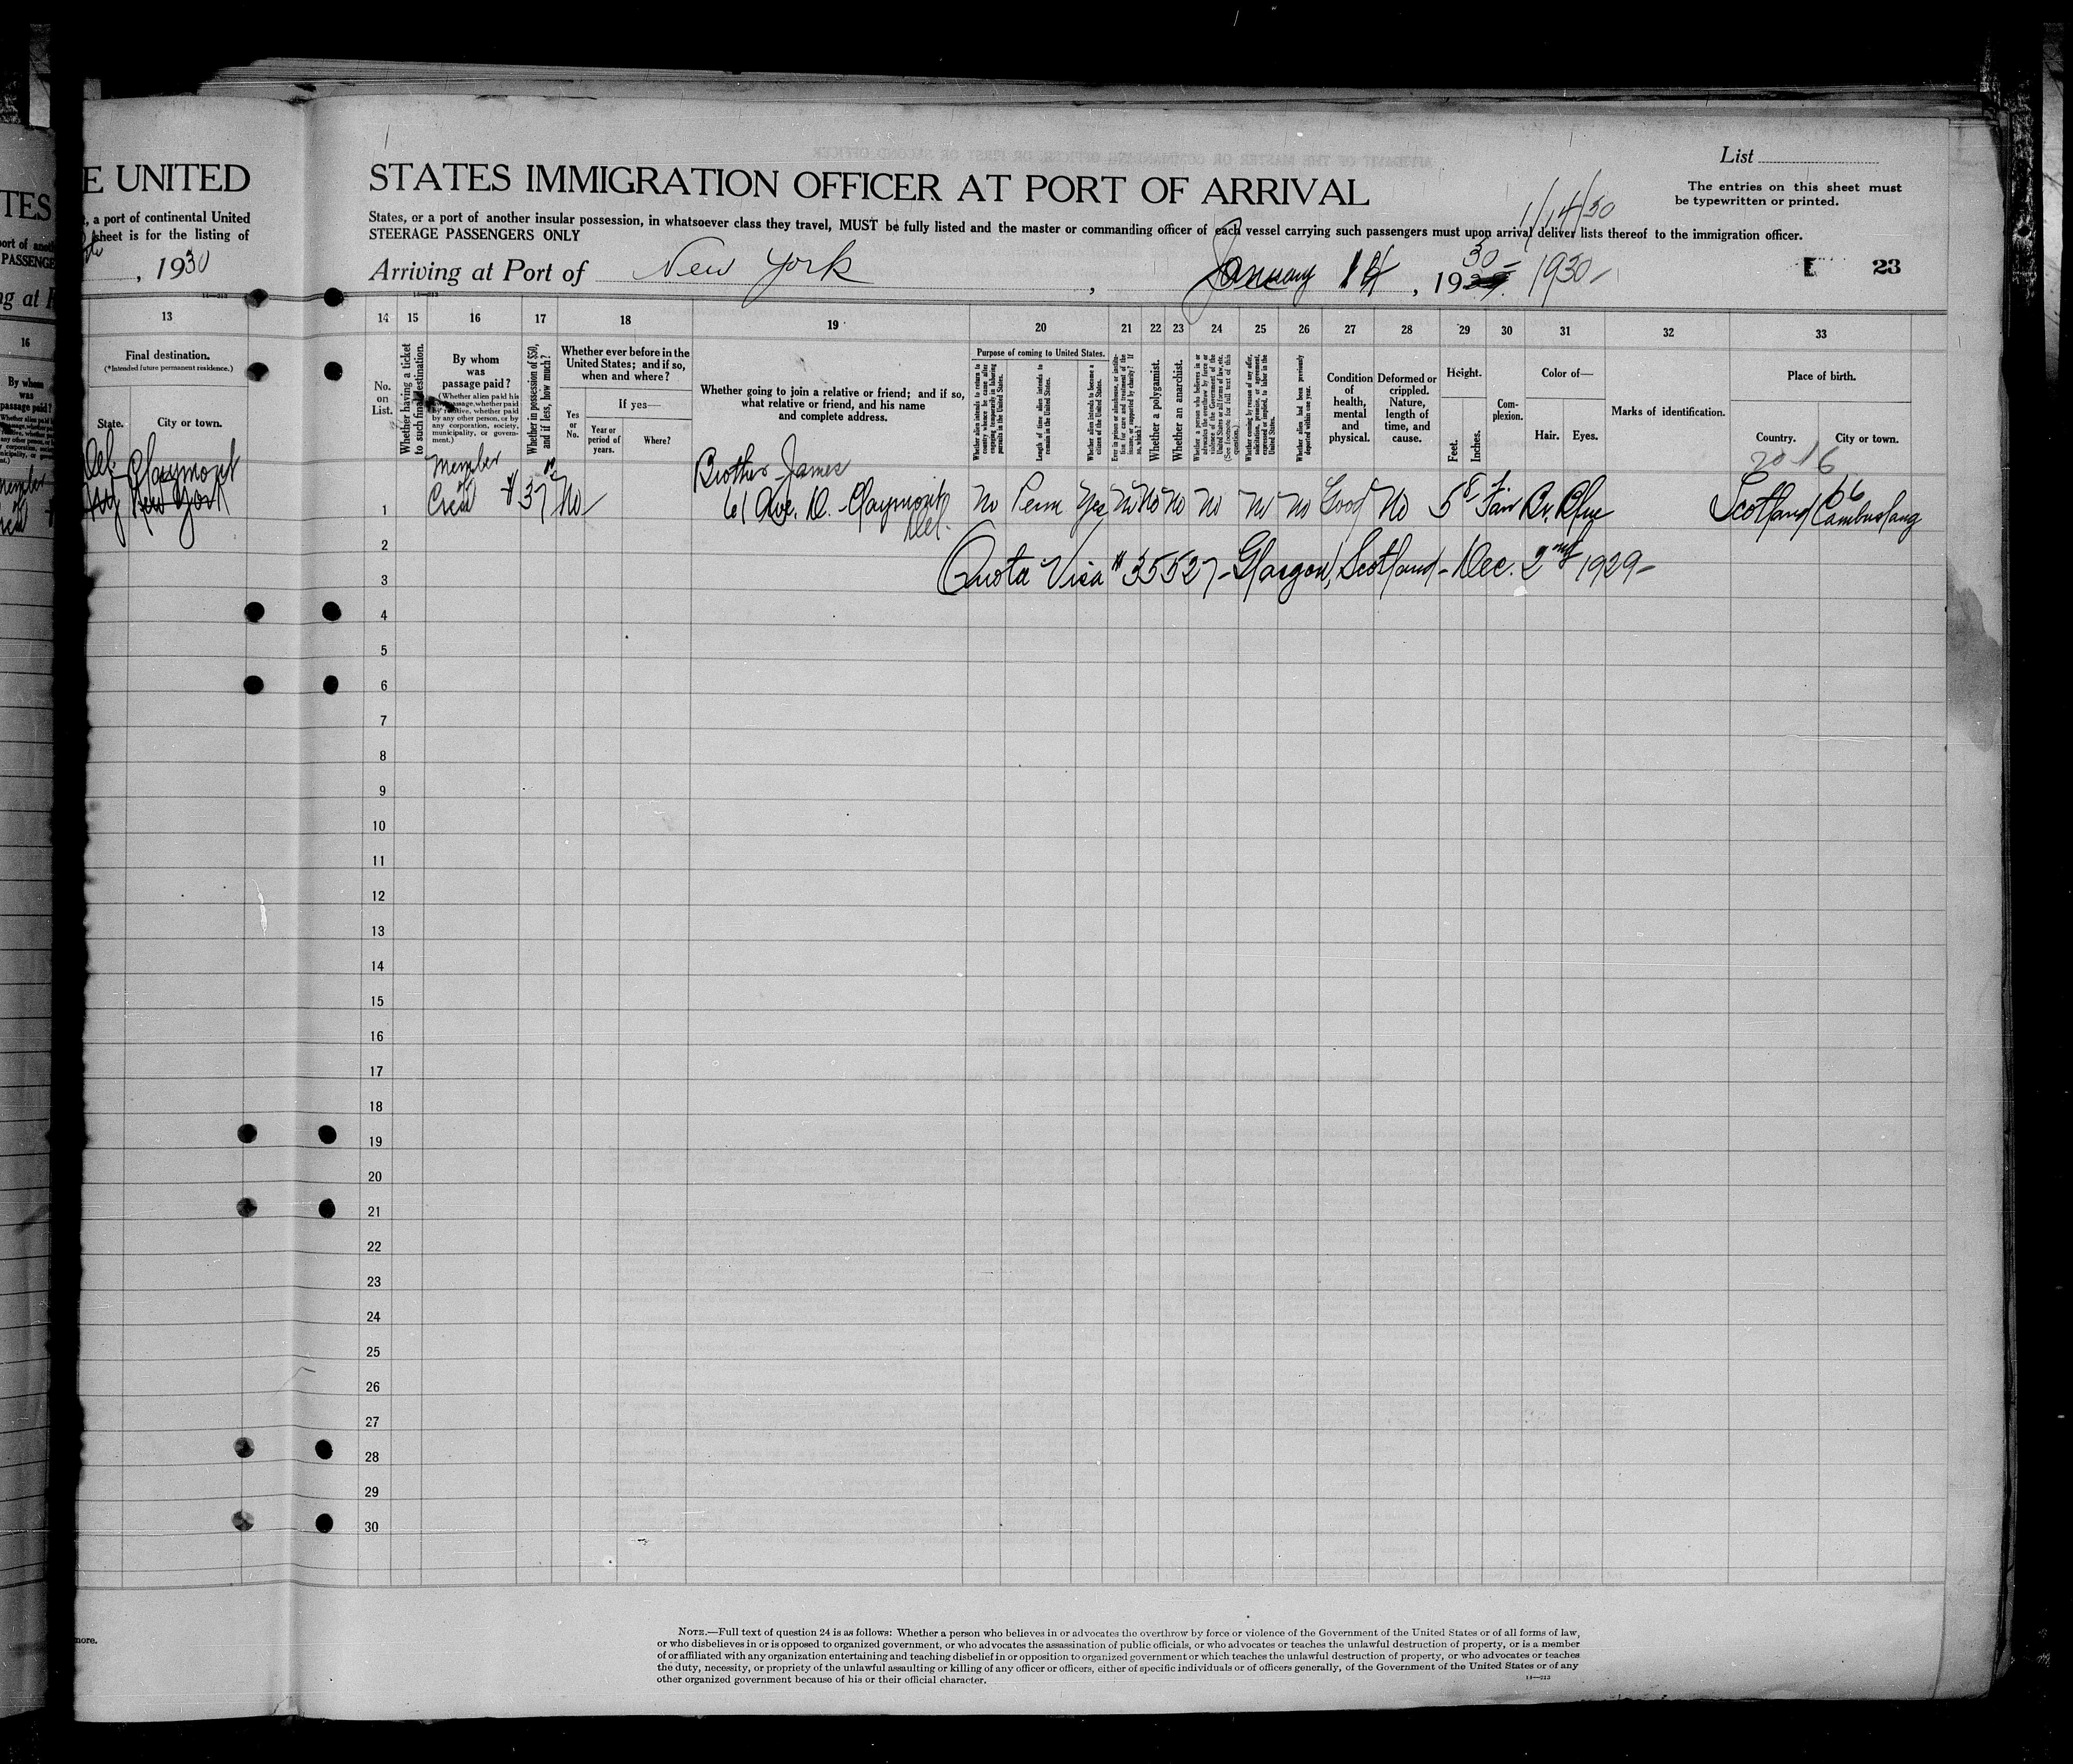 E UNITED
, a port of continental United
sheet is for the listing of
, 1930
13
Final destination.
(*Intended future permanent residence.)
State. City or town.
Del. Claymont
New York
more.
TES
PASSENGE
ng at P
16
By whom
was
passage paid?
List
STATES IMMIGRATION OFFICER AT PORT OF ARRIVAL
The entries on this sheet must
be typewritten or printed.
1/14/30
States, or a port of another insular possession, in whatsoever class they travel, MUST be fully listed and the master or commanding officer of each vessel carrying such passengers must upon arrival deliver lists thereof to the immigration officer.
STEERAGE PASSENGERS ONLY
Arriving at Port of New York , January 14 , 19 30- 1930-
23
14—213
14 15 16 17 18 19 20 21 22 23 24 25 26 27 28 29 30 31 32 33
No.
on
List.
Whether having a ticket
to such final destination.
By whom
was
passage paid?
(Whether alien paid his
own passage, whether paid
by relative, whether paid
by any other person, or by
any corporation, society,
municipality, or govern-
ment.)
Whether in possession of $50,
and if less, how much?
Whether ever before in the
United States; and if so,
when and where?
Yes
or
No.
If yes—
Year or
period of
years.
Where?
Whether going to join a relative or friend; and if so,
what relative or friend, and his name
and complete address.
Purpose of coming to United States.
Whether alien intends to return to
country whence he came after
engaging temporarily in laboring
pursuits in the United States.
Length of time alien intends to
remain in the United States.
Whether alien intends to become a
citizen of the United States.
Ever in prison or almshouse, or institu-
tion for care and treatment of the
insane, or supported by charity? If
so, which?
Whether a polygamist.
Whether an anarchist.
Whether a person who believes in or
advocates the overthrow by force or
violence of the Government of the
United States or all forms of law, etc.
(See footnote for full text of this
question.)
Whether coming by reason of any offer,
solicitation, promise, or agreement,
expressed or implied, to labor in the
United States.
Whether alien had been previously
deported within one year.
Condition
of
health,
mental
and
physical.
Deformed or
crippled.
Nature,
length of
time, and
cause.
Height.
Feet. Inches.
Com-
plexion.
Color of—
Hair. Eyes.
Marks of identification.
Place of birth.
Country. City or town.
20 16
Member
of
Crew $37 No
Brother James
61 Ave. D. Claymont
Del.
No Perm Yes No No No No No No Good No 5 8 Fair Br. Blue Scotland Cambuslang
66
Quota Visa # 35527 - Glasgow, Scotland - Dec. 2nd 1929-
1
2
3
4
5
6
7
8
9
10
11
12
13
14
15
16
17
18
19
20
21
22
23
24
25
26
27
28
29
30
NOTE.—Full text of question 24 is as follows: Whether a person who believes in or advocates the overthrow by force or violence of the Government of the United States or of all forms of law,
or who disbelieves in or is opposed to organized government, or who advocates the assassination of public officials, or who advocates or teaches the unlawful destruction of property, or is a member
of or affiliated with any organization entertaining and teaching disbelief in or opposition to organized government or which teaches the unlawful destruction of property, or who advocates or teaches
the duty, necessity, or propriety of the unlawful assaulting or killing of any officer or officers, either of specific individuals or of officers generally, of the Government of the United States or of any
other organized government because of his or their official character.
14—213